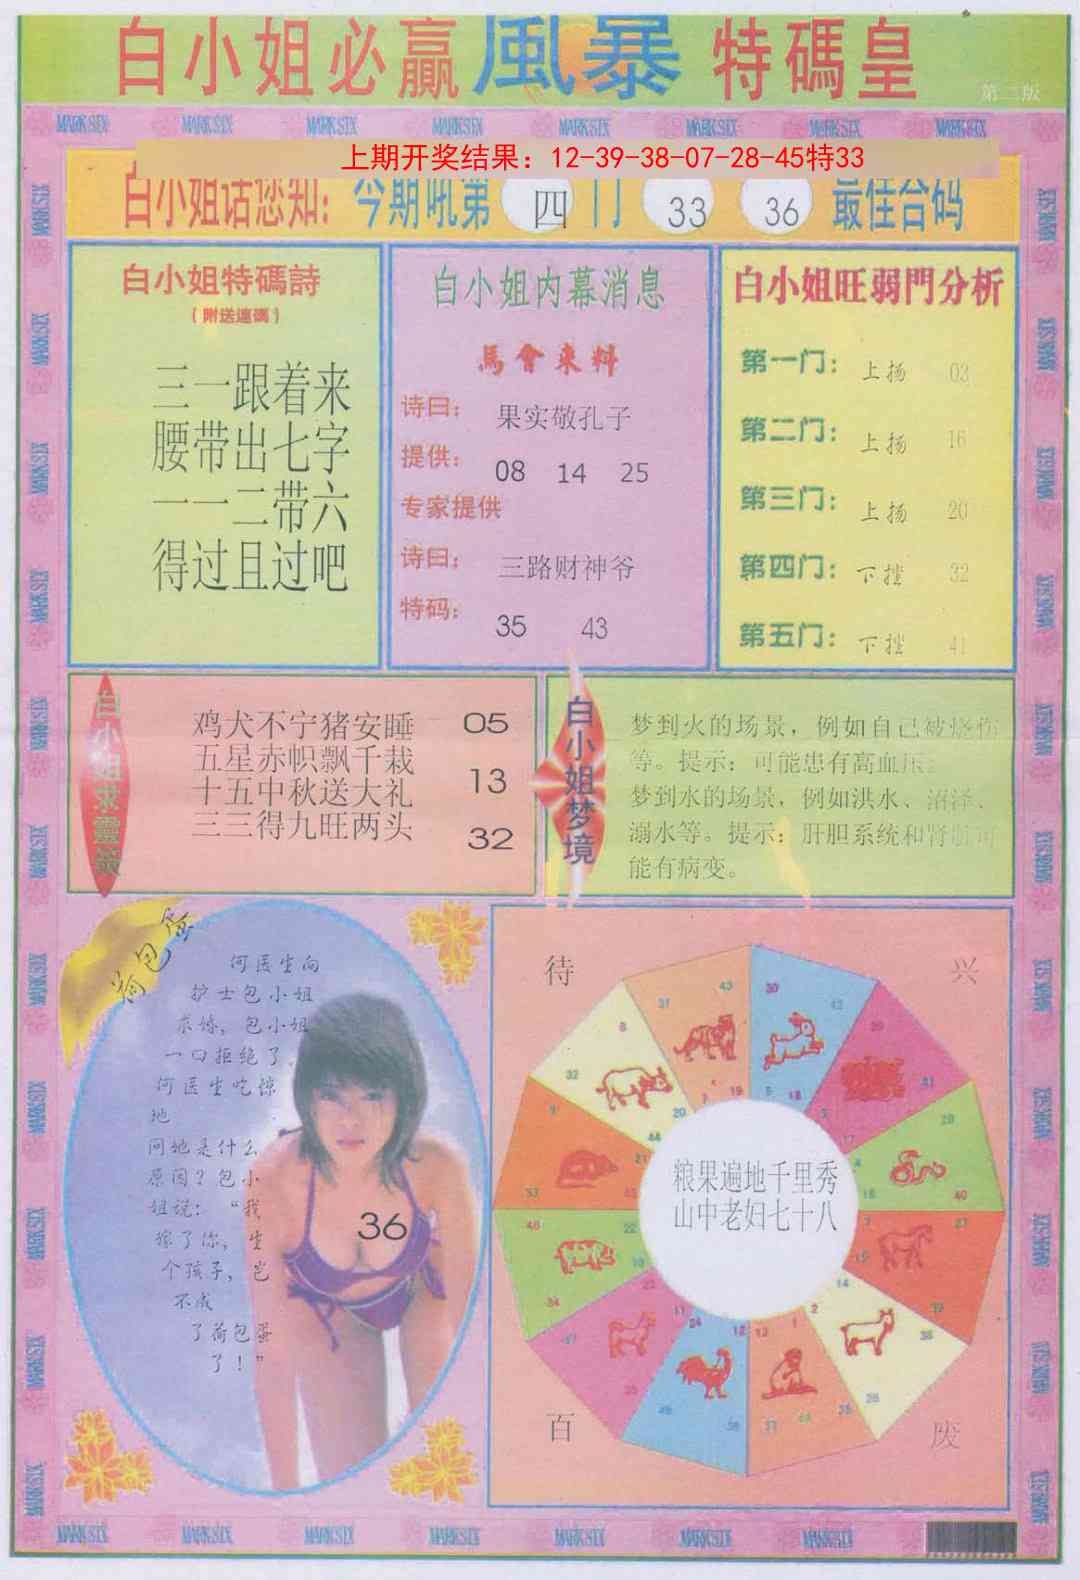 白小姐必贏風暴特碼皇
第二版
MARK SIX MARK SIX MARK SIX MARK SIX MARK SIX MARK SIX MARK SIX MARK SIX
上期开奖结果：12-39-38-07-28-45特33
白小姐话您知：今期吼第四门 33 36 最佳合码
白小姐特碼詩
（附送連碼）
三一跟着来
腰带出七字
一一二带六
得过且过吧
白小姐内幕消息
馬會來料
诗曰： 果实敬孔子
提供： 08 14 25
专家提供
诗曰： 三路财神爷
特码： 35 43
白小姐旺弱門分析
第一门：上扬 03
第二门：上扬 16
第三门：上扬 20
第四门：下挫 32
第五门：下挫 41
白小姐求靈籤
鸡犬不宁猪安睡 05
五星赤帜飘千栽
十五中秋送大礼 13
三三得九旺两头 32
白小姐梦境
梦到火的场景，例如自己被烧伤
等。提示：可能患有高血压
梦到水的场景，例如洪水、沼泽、
溺水等。提示：肝胆系统和肾脏可
能有病变。
荷包蛋
何医生向
护士包小姐
求婚，包小姐
一口拒绝了，
何医生吃惊
地
问她是什么
原因？包小
姐说：“我
嫁了你，生
个孩子，岂
不成
了荷包蛋
了！”
36
待 兴
粮果遍地千里秀
山中老妇七十八
百 废
MARK SIX MARK SIX MARK SIX MARK SIX MARK SIX MARK SIX MARK SIX